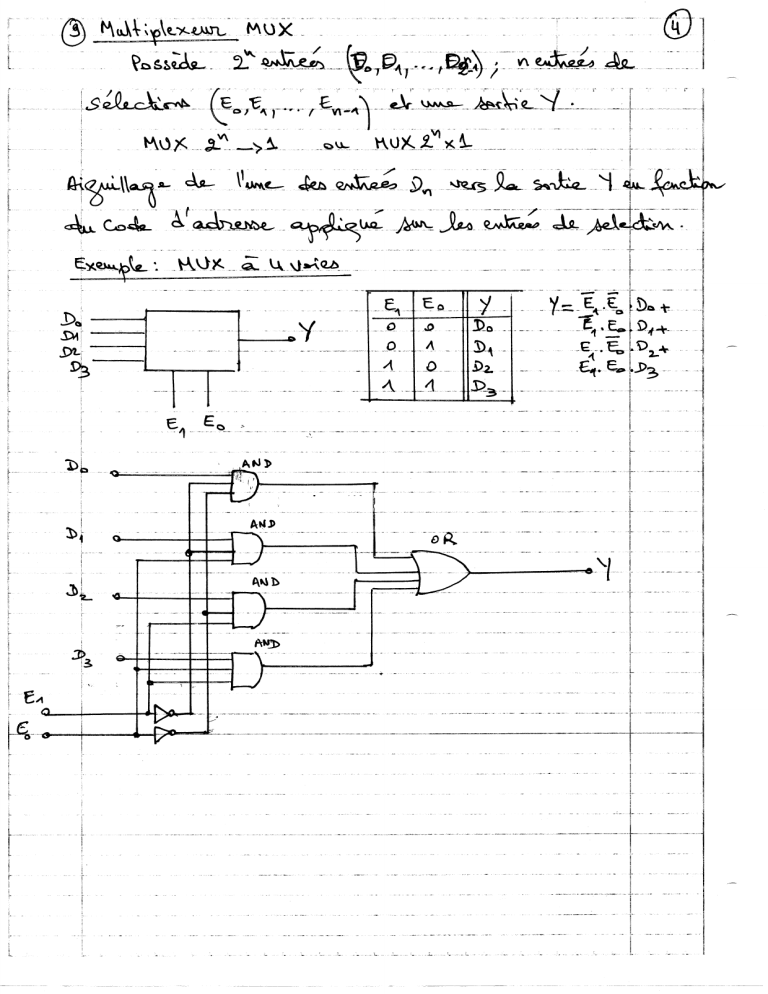 9 Multiplexeur MUX 4
Possède 2^n entrées (D₀, D₁, ..., D₂ⁿ₋₁); n entrées de
sélections (E₀, E₁, ..., Eₙ₋₁) et une sortie Y.
MUX 2^n → 1 ou MUX 2^n x 1
Aiguillage de l'une des entrées Dₙ vers la sortie Y en fonction
du code d'adresse appliqué sur les entrées de selection.
Exemple: MUX à 4 voies
D₀
D1
D2
D3
Y
E₁ E₀
E₁ E₀ Y
0 0 D₀
0 1 D₁
1 0 D₂
1 1 D₃
Y = E̅₁.E̅₀.D₀+
E̅₁.E₀.D₁+
E₁.E̅₀.D₂+
E₁.E₀.D₃
D₀ AND
D₁ AND
OR
Y
D₂ AND
D₃ AND
E₁
E₀